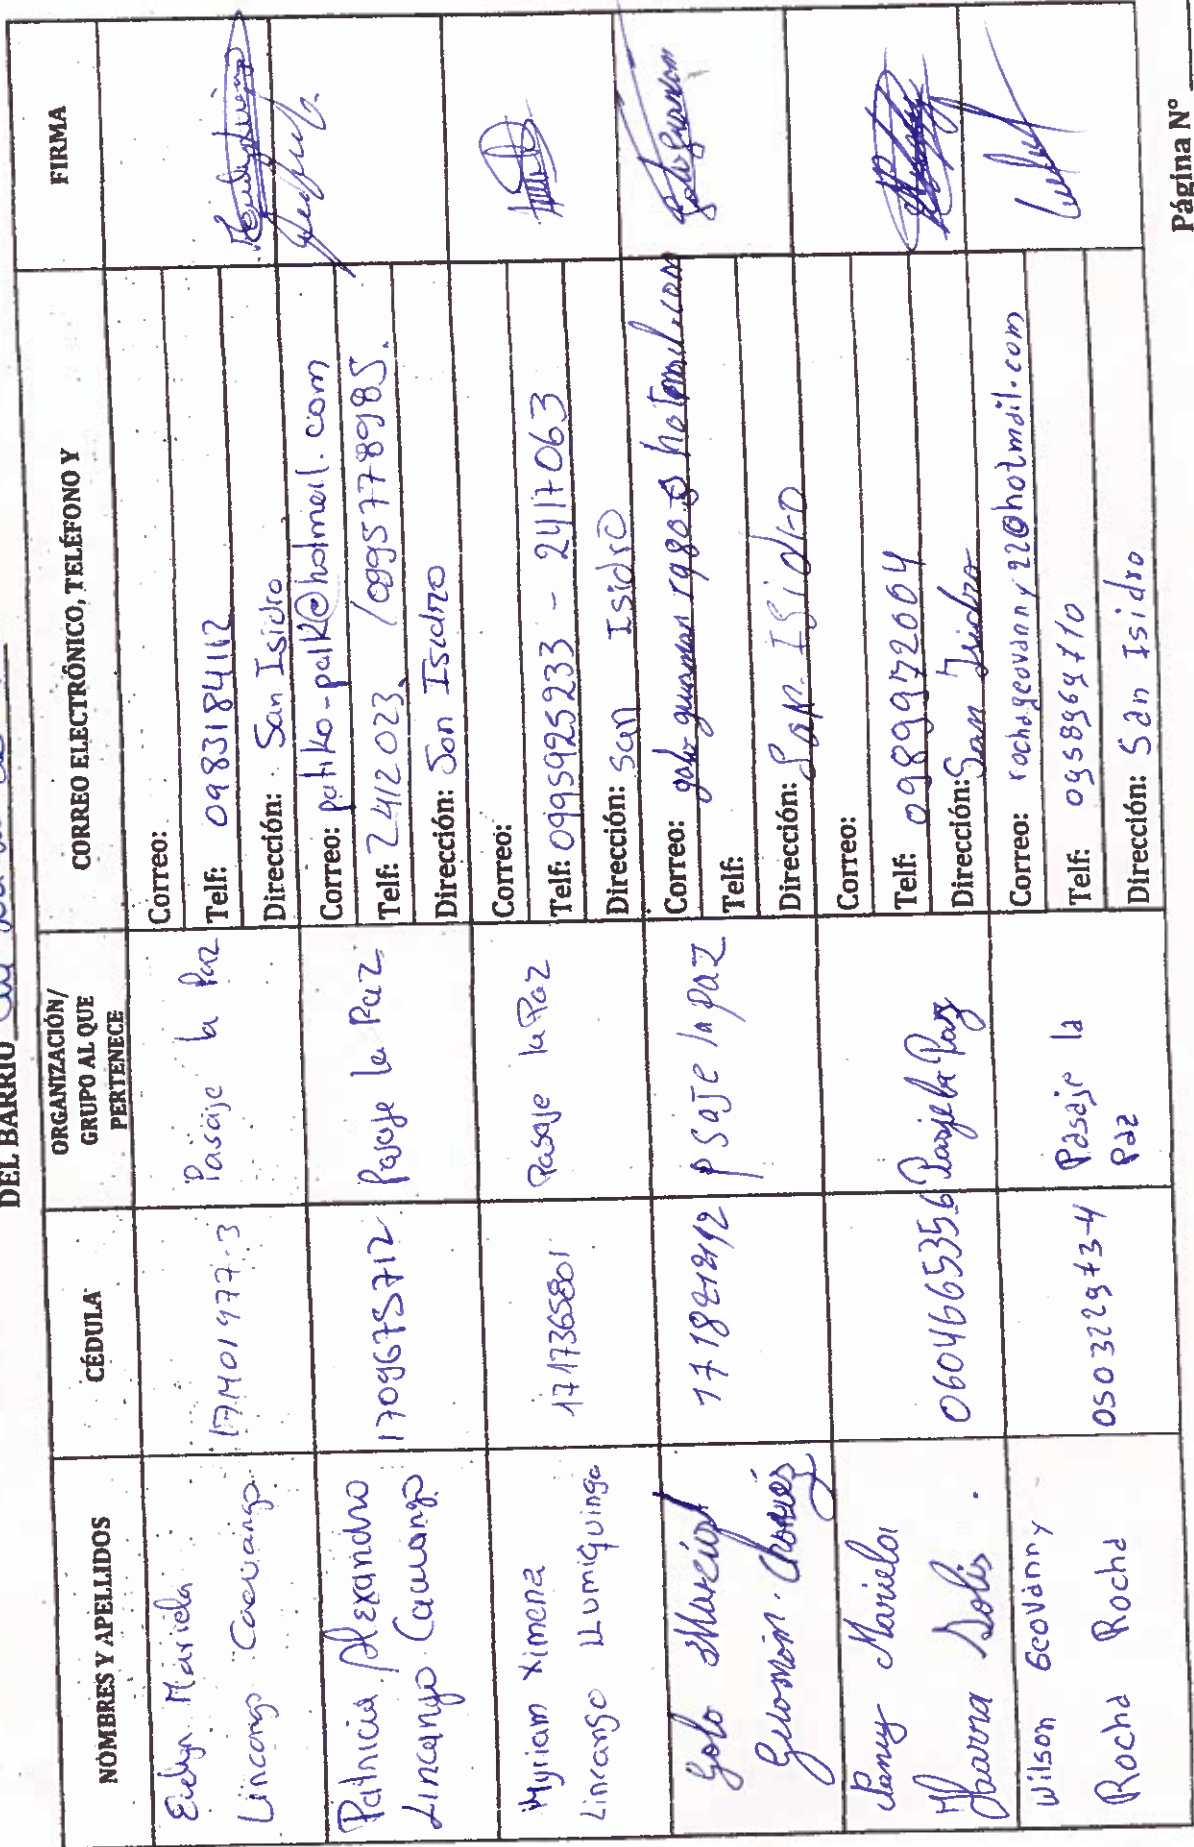 DEL BARRIO
NOMBRES Y APELLIDOS
CÉDULA
ORGANIZACIÓN/
GRUPO AL QUE
PERTENECE
CORREO ELECTRÓNICO, TELÉFONO Y
FIRMA
Evelyn Mariela
Lincango Cacuango
171401977-3
Pasaje la Paz
Correo:
Telf: 0983184112
Dirección: San Isidro
Patricia Alexandra
Lincango Cacuango
1709675712
Pasaje la Paz
Correo: patiko-palk@hotmail.com
Telf: 2412023 / 0995778985.
Dirección: San Isidro
Myriam Ximena
Lincango Llumiquinga
1717365801
Pasaje la Paz
Correo:
Telf: 0995925233 - 2417063
Dirección: San Isidro
Galo Marcial
Guzmán
psaje la paz
Correo:
Telf:
Dirección: San Isidro
Mariela
Ibarra Solis
0604665356
Pasaje la Paz
Correo:
Telf: 0989972004
Dirección: San Isidro
Wilson Geovanny
Rocha Rocha
050322973-4
Pasaje la
Paz
Correo: rochageovanny22@hotmail.com
Telf: 0958969710
Dirección: San Isidro
Página N°